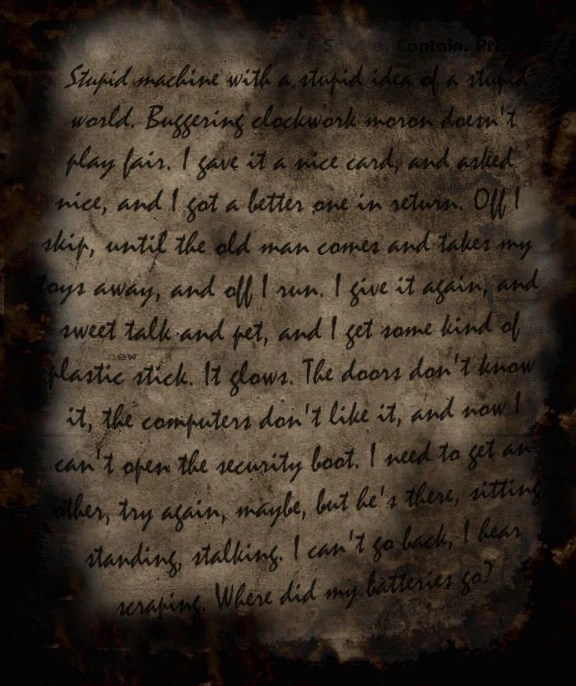 Contain. Pr
Stupid machine with a stupid idea of a stupid
world. Buggering clockwork moron doesn't
play fair. I gave it a nice card, and asked
nice, and I got a better one in return. Off I
skip, until the old man comes and takes my
toys away, and off I run. I give it again, and
sweet talk and pet, and I get some kind of
new
plastic stick. It glows. The doors don't know
it, the computers don't like it, and now I
can't open the security boot. I need to get an-
other, try again, maybe, but he's there, sitting,
standing, stalking. I can't go back, I hear
scraping. Where did my batteries go?